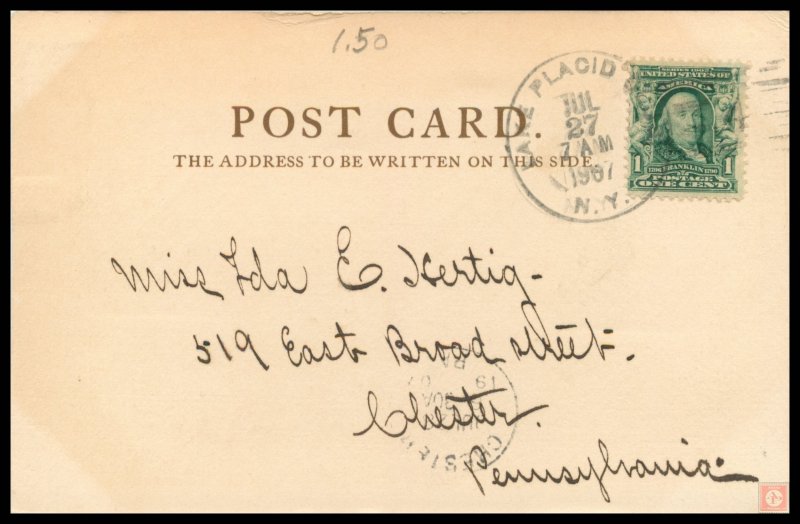 1.50
LAKE PLACID
JUL
27
7 AM
1907
N.Y.
SERIES 1902
UNITED STATES OF
AMERICA
1 1706 FRANKLIN 1790 1
POSTAGE
ONE CENT
POST CARD.
THE ADDRESS TO BE WRITTEN ON THIS SIDE.
Miss Ida E. Hertig-
519 East Broad street.
Chester.
Pennsylvania.
CHESTER
PA